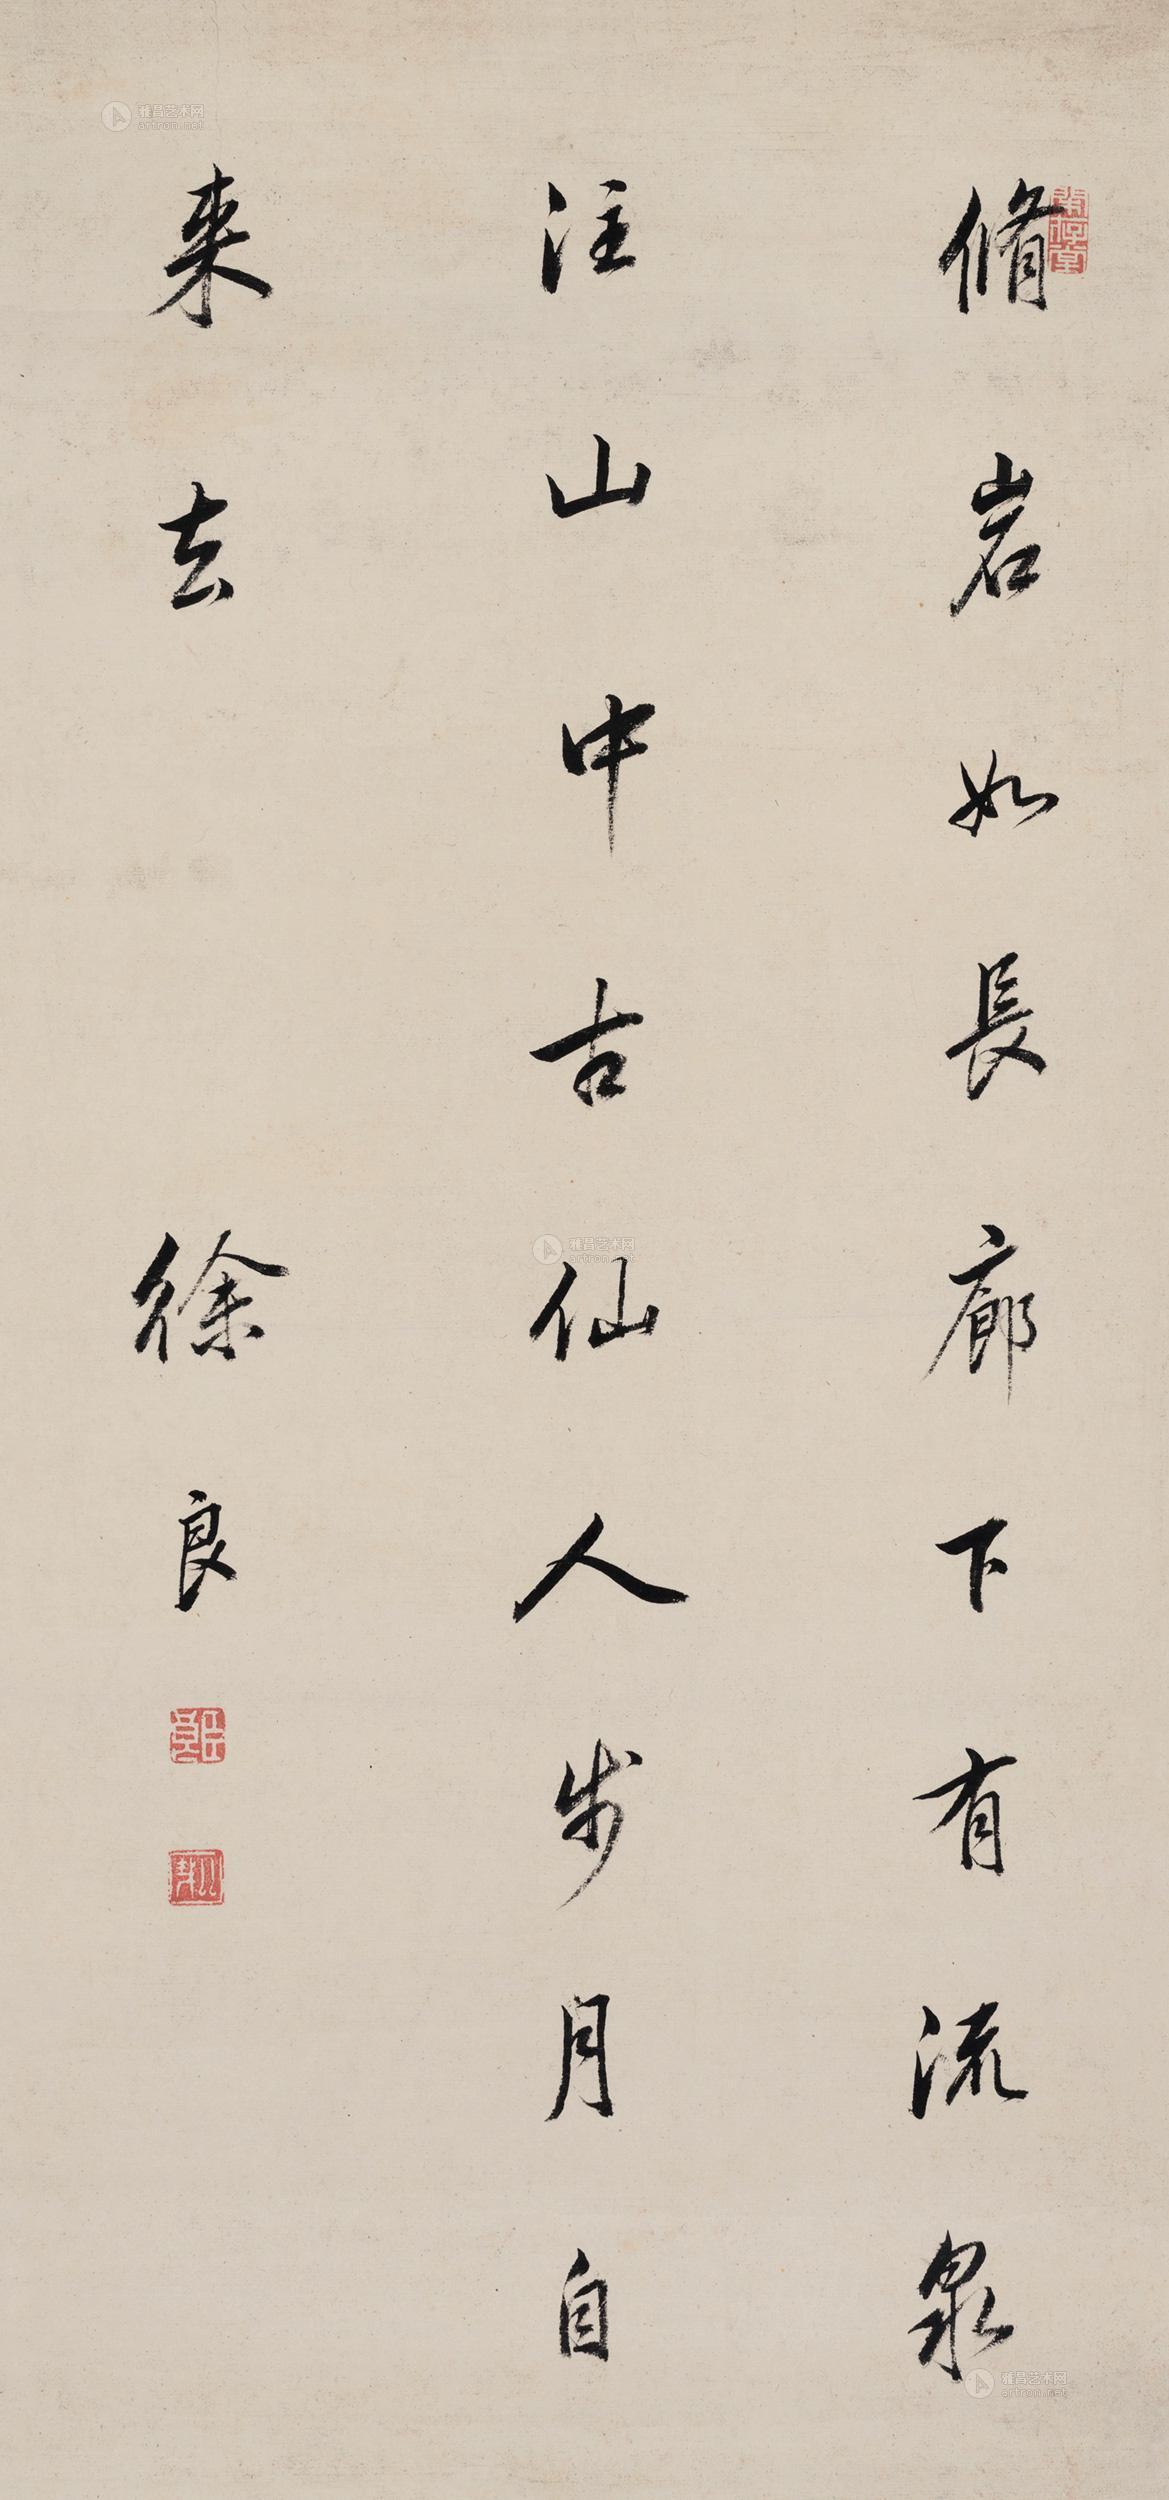 脩岩如長廊下有流泉
注山中古仙人步月自
来去
徐良
雅昌艺术网
artron.net
雅昌艺术网
artron.net
雅昌艺术网
artron.net